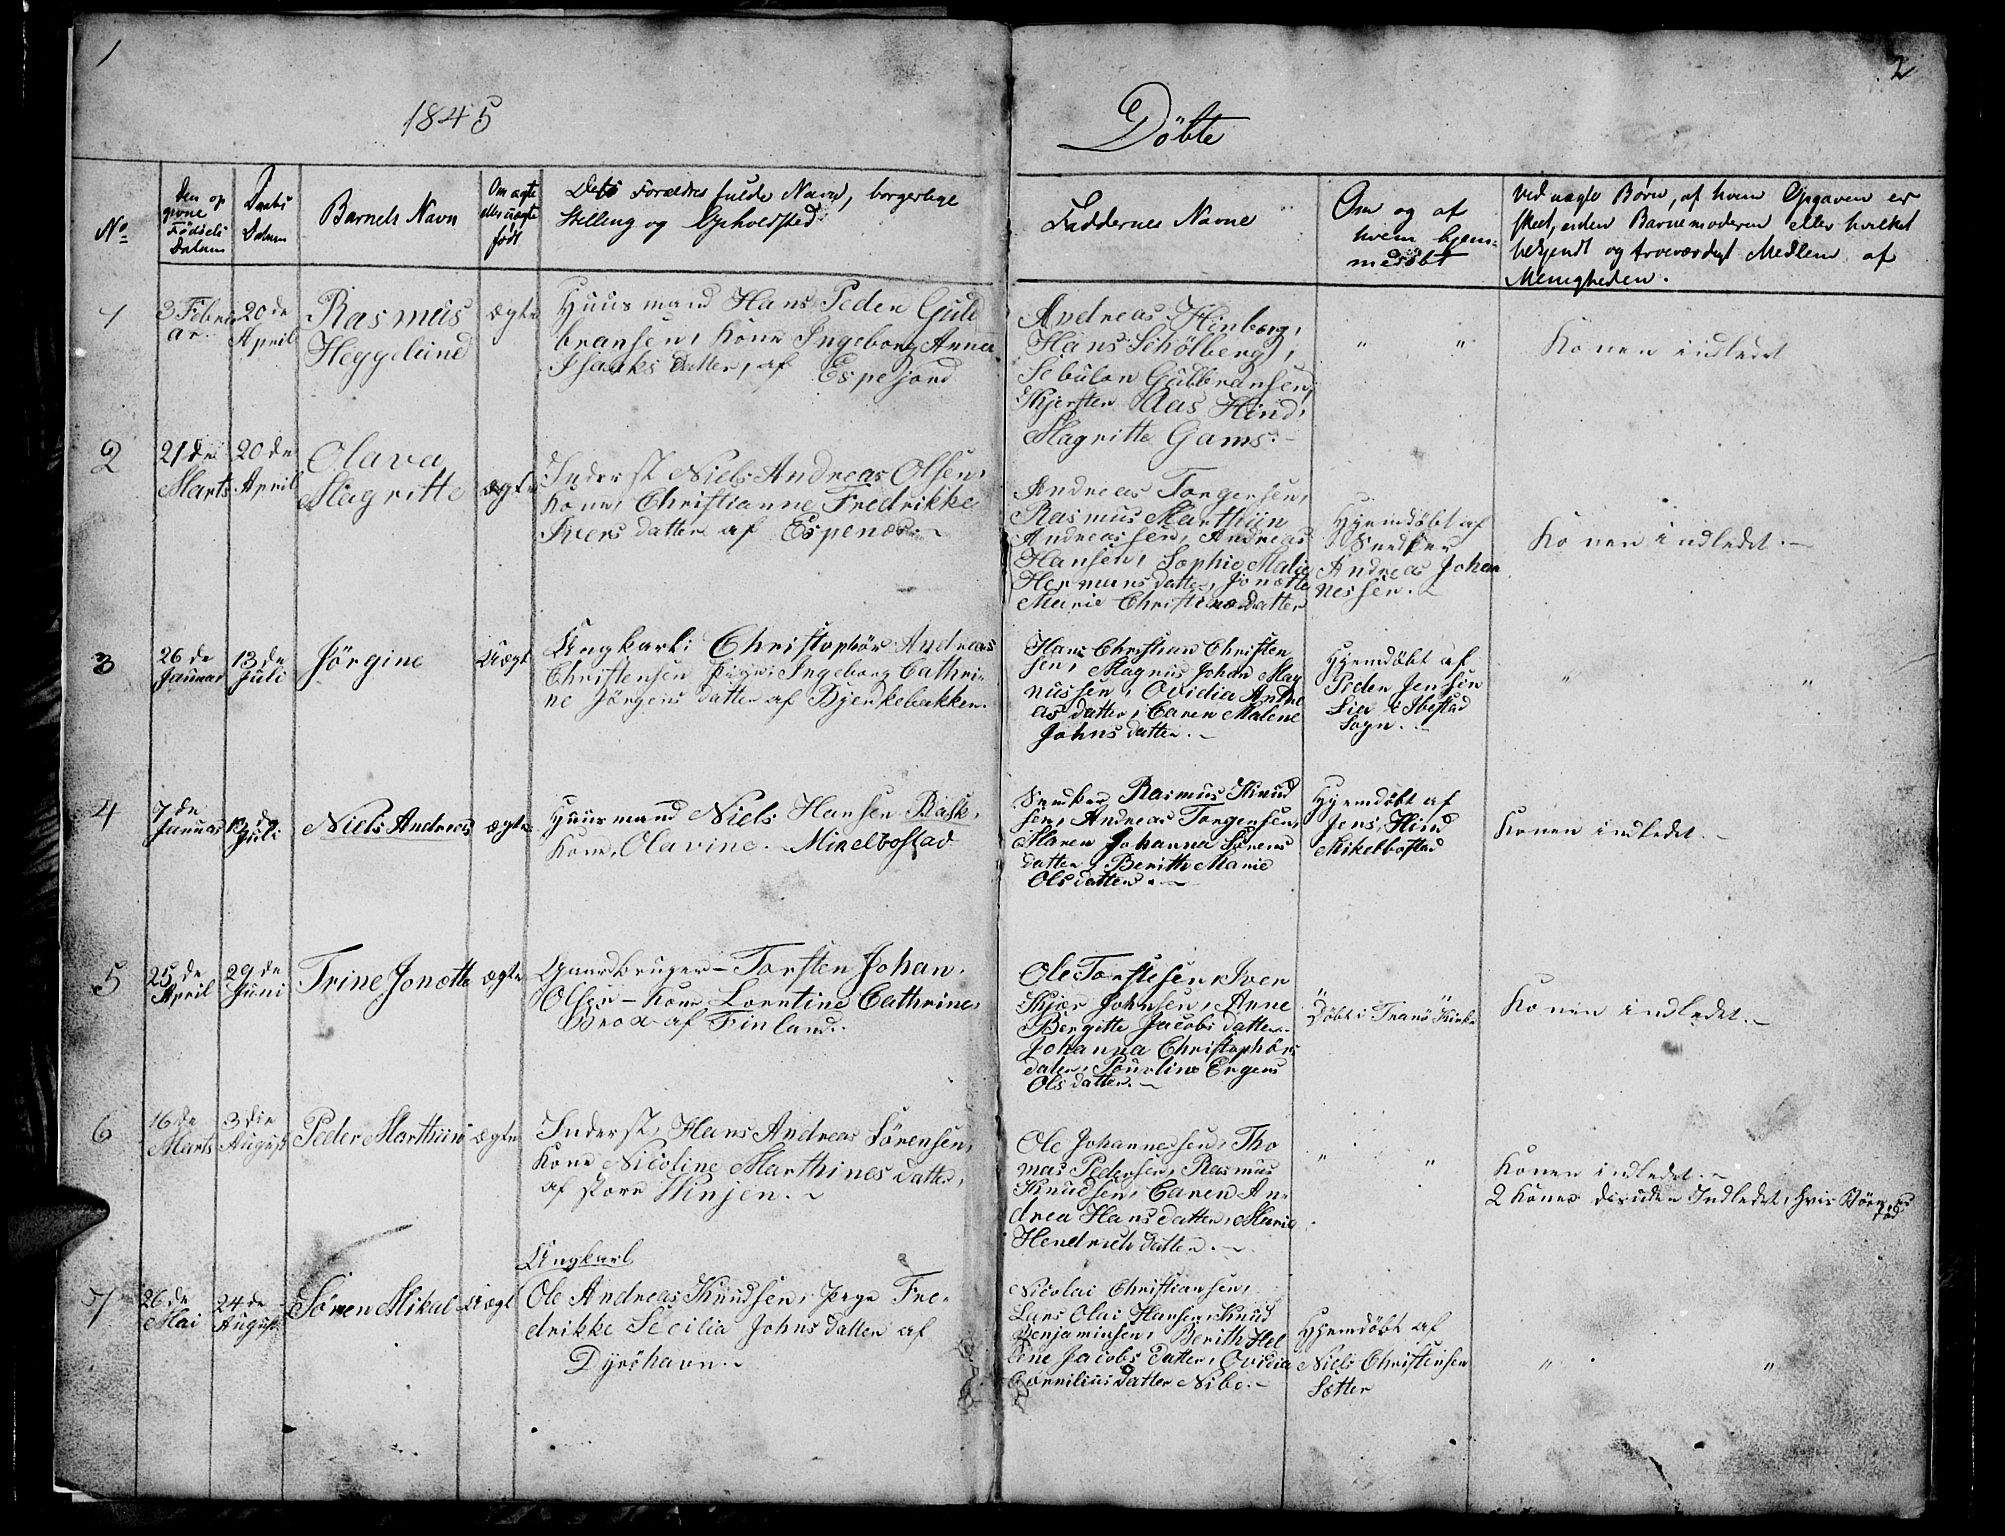 1
2
1845
Döbte
No
den op
givne
Fødsels
Datum
Daabs
Datum
Barnets Navn
Om ægte
eller uægte
født
Dets Forældres fulde Navn, borgerlige
Stilling og Opholdsted
Faddernes Navne
Om og af
hvem hjem-
medöbt
Ved uægte Børn, af hvem Opgaven er
skeet, enden Barnemoderen eller hvilket
bekjendt og troværdigt Medlem af
Menigheden.
1
3 Febru
ar
20 de
April
Rasmus
Heggelund
ægte
Huusmand Hans Peder Guld
bransen, Kone Ingeborg Anna
Isaaks datter, af Espejord
Andreas Hinberg,
Hans Schölberg,
Sebulon Gulbransen,
Kjersten Aas Hind,
Magritte Gams.-
" "
Konen indledet
2
21 de
Marts
20 de
April
Olava
Magritte
ægte
Inderst Niels Andreas Olsen,
Kone, Christianne Fredrikke
Ivers datter af Espenæs -
Andreas Torgersen,
Rasmus Marthin
Andreassen, Andreas
Hansen, Sophie Malie
Hermans datter, Jonette
Marie Christiansdatter
Hjemdöbt af
Snedker
Andreas Johan
nessen.
Konen indledet.-
3
26 de
Januar
13 de
Juli
Jörgine
Uægt
Ungkarl: Christophör Andreas
Christensen Pige: Ingeborg Cathri-
ne Jörgens datter af Bjerkebakken.
Hans Christian Christen
sen, Magnus Johan Mag
nussen, Ovidia Andre
as datter, Caren Malene
Johns datter.-
Hjemdöbt af
Peder Jensen
Lier i Ibestad
Sogn.
" "
4
7 de
Januar
13 de
Juli
Niels Andreas
ægte
Huusmand Niels Hansen Bask,
Kone, Olavine. - Mikelbostad
Snedker Rasmus Knud
sen, Andreas Torgersen,
Maren Johanna Sörens
datter, Beritte Marie
Ols datter.-
Hjemdöbt af
Jens Hind
Mikelbostad
Konen indledet.-
5
25 de
April
29 de
Juni
Trine Jonette
ægte
Gaardbruger - Torsten Johan
Olsen - Kone Lorntine Cathrine,
Brox af Finland.
Ole Torstesen, Iver
Kjær Johnsen, Anne
Bergitte Jacobs datter
Johanna Christophörs
dater, Pouline
Ols datter.-
Döbt i Tranö Kirke
Konen indledet.-
6
16 de
Marts
3 die
August
Peder Marthin
ægte
Inderst, Hans Andreas Sörensen,
Kone Nicoline Marthines datter,
af store Vinjen.-
Ole Johannessen, Tho
mas Pedersen, Rasmus
Knudsen, Caren An-
drea Hans datter, Marie
Hendrich datter.-
" "
Konen indledet.-
2 Koner desuden Indledet, hvis Börn er
död
7
26 de
Mai
24 de
August
Sören Mikal
Uægt
Ungkarl
Ole Andreas Knudsen, Pige Fre-
drikke Secilia Johns datter af
Dyröhavn.-
Nicolai Christiansen,
Lars Olai Hansen, Knud
Benjaminsen, Berith Hel
lene Jacobs datter, Ovidia
Cornilius datter Nibe.-
Hjemdöbt af
Niels Christensen
Sætter
" "